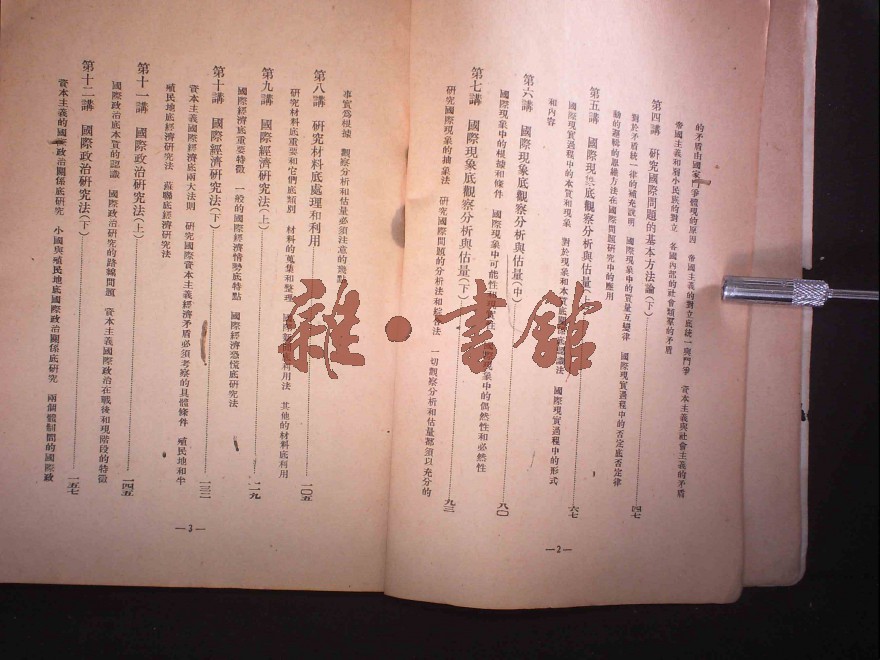 的矛盾由國家鬥爭體現的原因　帝國主義的對立底統一與鬥爭　資本主義與社會主義的矛盾
帝國主義和弱小民族的對立　各國內部的社會類羣的矛盾
第四講　研究國際問題的基本方法論(下)………四七
對於矛盾統一律的補充說明　國際現象中的質量互變律　國際現實過程中的否定底否定律
動的邏輯的思維方法在國際問題研究中的應用
第五講　國際現象底觀察分析與估量(上)………六七
國際現實過程中的本質和現象　對於現象和本質底關係底認識法　國際現實過程中的形式
和內容
第六講　國際現象底觀察分析與估量(中)………八〇
國際現象中的根據和條件　國際現象中可能性和現實性　國際現象中的偶然性和必然性
第七講　國際現象底觀察分析與估量(下)………九三
研究國際現象的抽象法　研究國際問題的分析法和綜合法　一切觀察分析和估量都須以充分的
—2—
事實爲根據　觀察分析和估量必須注意的幾點
第八講　研究材料底處理和利用………一〇五
研究材料底重要和它們底類別　材料的蒐集和整理　底利用法　其他的材料底利用
第九講　國際經濟研究法(上)………一一九
國際經濟底重要特徵　一般的國際經濟情勢底特點　國際經濟恐慌底研究法
第十講　國際經濟研究法(下)………一三三
資本主義國際經濟底兩大法則　研究國際資本主義經濟矛盾必須考察的具體條件　殖民地和半
殖民地底經濟研究法　蘇聯底經濟研究法
第十一講　國際政治研究法(上)………一四五
國際政治底本質的認識　國際政治研究的路線問題　資本主義國際政治在戰後和現階段的特徵
第十二講　國際政治研究法(下)………一五七
資本主義的國際政治關係底研究　小國與殖民地底國際政治關係底研究　兩個體制間的國際政
—3—
雜·書館